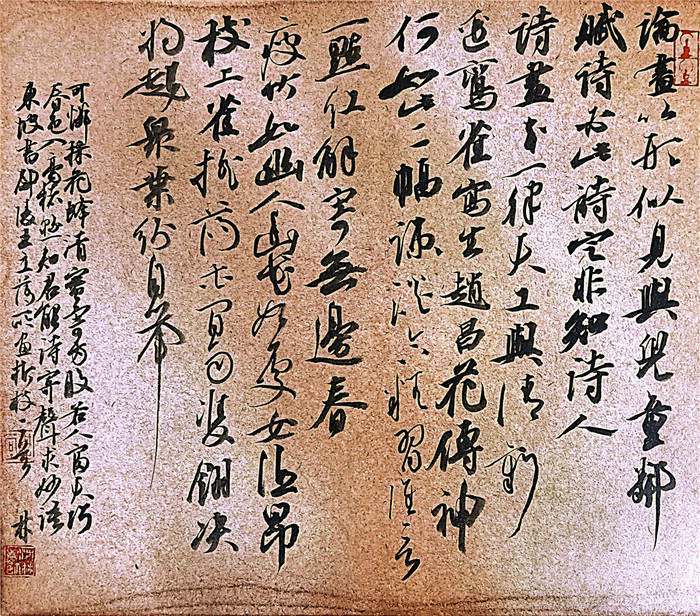 論畫以形似見與兒童鄰
賦詩必此詩定非知詩人
詩畫本一律天工與清新
邊鸞雀寫生趙昌花傳神
何如此二幅疎澹含精誰言
一點紅解寄無邊春
瘦竹如幽人幽花如處女低昂
枝上雀搖蕩花間雨雙翎決
將起眾葉紛自舉
可憐採花蜂清蜜寄兩股若人富天巧
春色入毫楮懸知君能詩寄聲求妙語
東坡書鄢陵王主簿所畫折枝二首 林